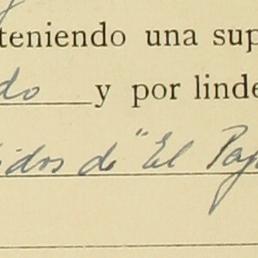 teniendo una sup
do y por linde
idos de "El Pap